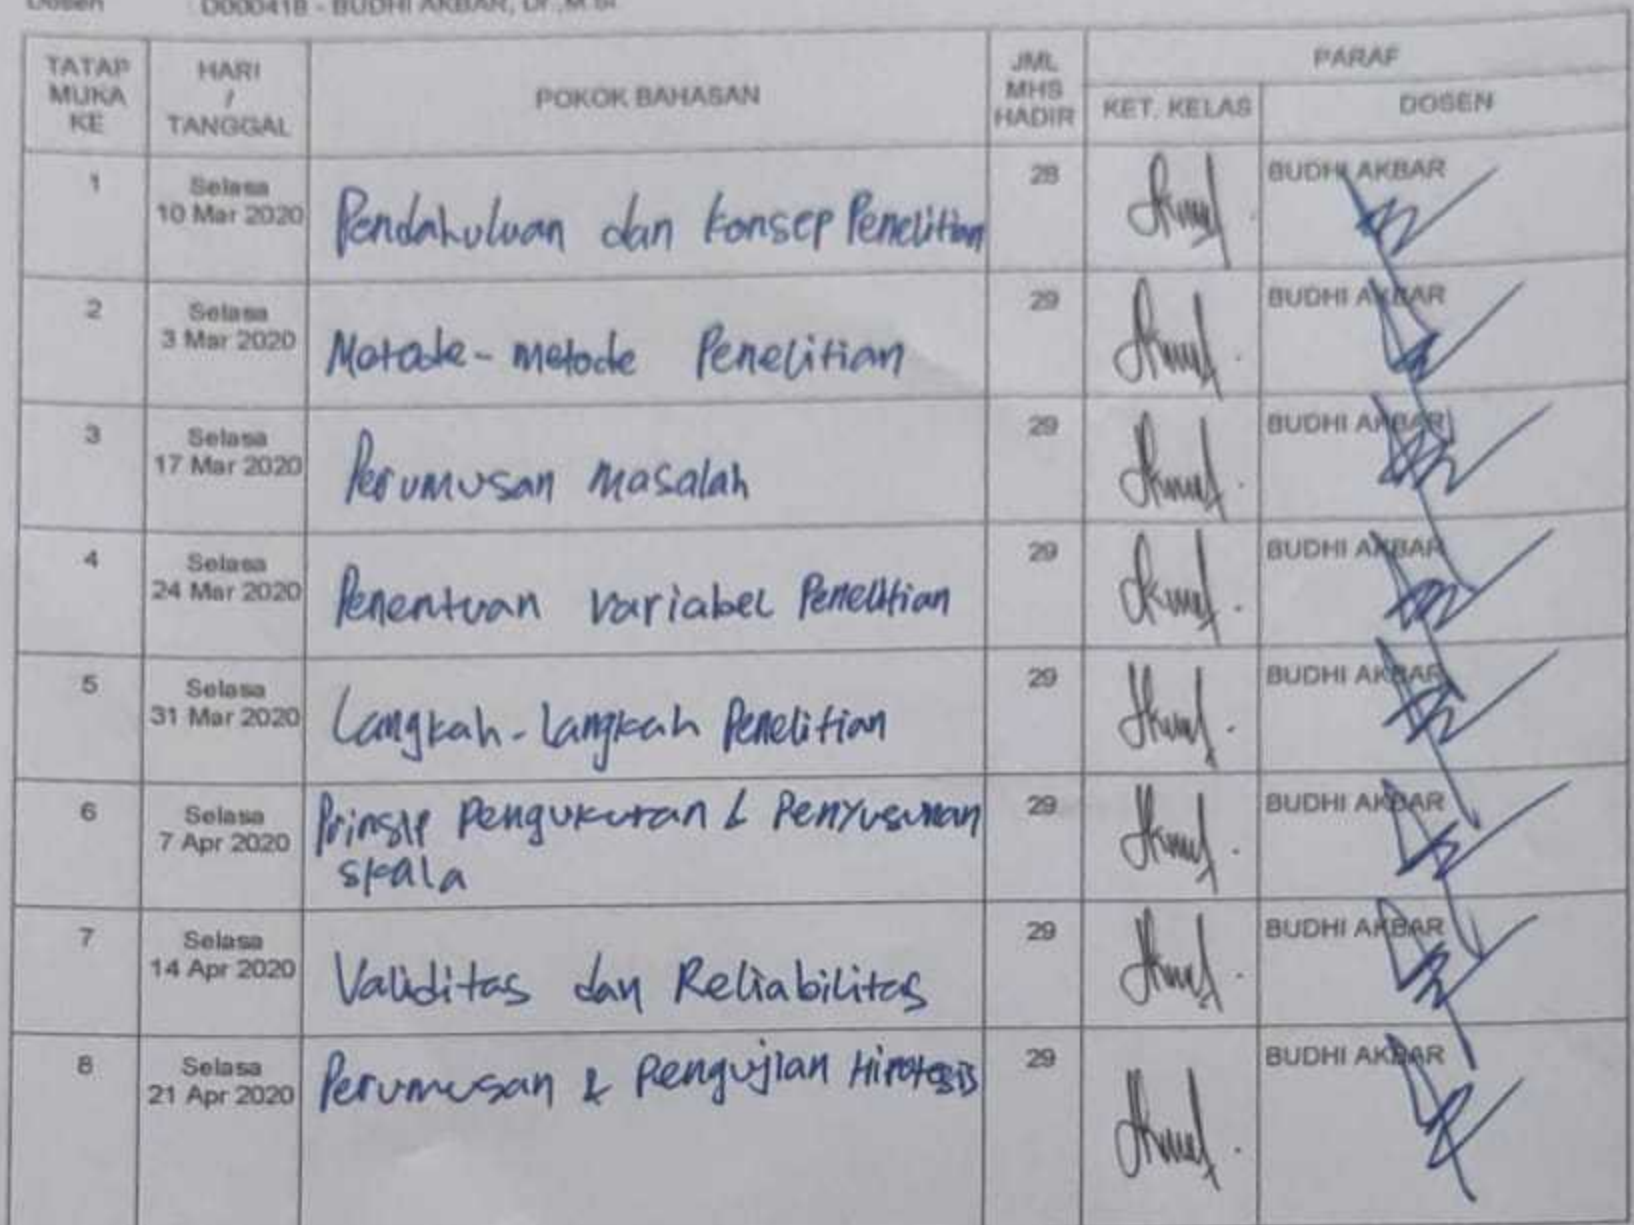 Dosen D000418 - BUDHI AKBAR, Dr.,M.Si
TATAP MUKA KE
HARI / TANGGAL
POKOK BAHASAN
JML MHS HADIR
PARAF
KET. KELAS
DOSEN
1 Selasa 10 Mar 2020 Pendahuluan dan konsep Penelitian 28 BUDHI AKBAR
2 Selasa 3 Mar 2020 Matode-metode Penelitian 29 BUDHI AKBAR
3 Selasa 17 Mar 2020 Perumusan Masalah 29 BUDHI AKBAR
4 Selasa 24 Mar 2020 Penentuan variabel Penelitian 29 BUDHI AKBAR
5 Selasa 31 Mar 2020 Langkah-langkah Penelitian 29 BUDHI AKBAR
6 Selasa 7 Apr 2020 Prinsip Pengukuran & Penyusunan 29 BUDHI AKBAR
skala
7 Selasa 14 Apr 2020 Validitas dan Reliabilitas 29 BUDHI AKBAR
8 Selasa 21 Apr 2020 Perumusan & Pengujian Hipotesis 29 BUDHI AKBAR